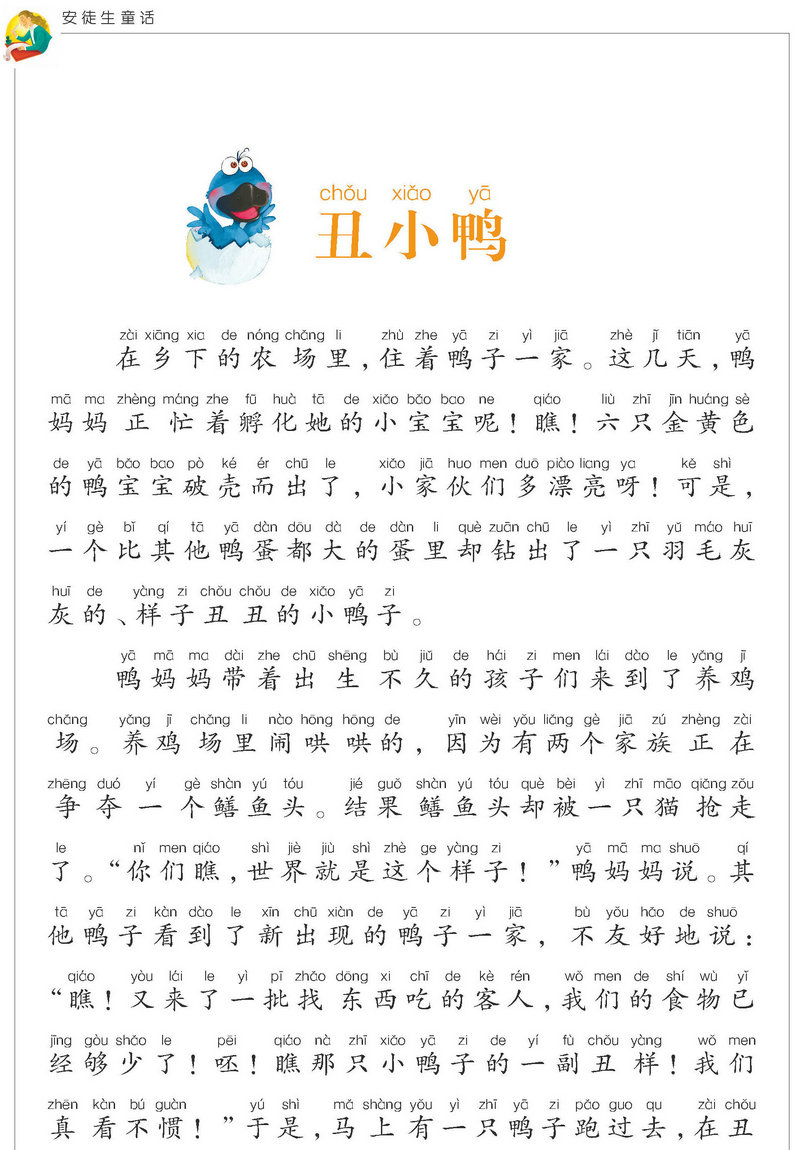 安徒生童话
chǒu xiǎo yā
丑小鸭
zài xiāng xia de nóng chǎng li zhù zhe yā zi yì jiā zhè jǐ tiān yā
在乡下的农场里,住着鸭子一家。这几天,鸭
mā ma zhèng máng zhe fū huà tā de xiǎo bǎo bao ne qiáo liù zhī jīn huáng sè
妈妈正忙着孵化她的小宝宝呢!瞧!六只金黄色
de yā bǎo bao pò ké ér chū le xiǎo jiā huo men duō piào liang ya kě shì
的鸭宝宝破壳而出了,小家伙们多漂亮呀!可是,
yí gè bǐ qí tā yā dàn dōu dà de dàn li què zuān chū le yì zhī yǔ máo huī
一个比其他鸭蛋都大的蛋里却钻出了一只羽毛灰
huī de yàng zi chǒu chǒu de xiǎo yā zi
灰的、样子丑丑的小鸭子。
yā mā ma dài zhe chū shēng bù jiǔ de hái zi men lái dào le yǎng jī
鸭妈妈带着出生不久的孩子们来到了养鸡
chǎng yǎng jī chǎng li nào hōng hōng de yīn wèi yǒu liǎng gè jiā zú zhèng zài
场。养鸡场里闹哄哄的,因为有两个家族正在
zhēng duó yí gè shàn yú tóu jié guǒ shàn yú tóu què bèi yì zhī māo qiǎng zǒu
争夺一个鳝鱼头。结果鳝鱼头却被一只猫抢走
le nǐ men qiáo shì jiè jiù shì zhè ge yàng zi yā mā ma shuō qí
了。“你们瞧,世界就是这个样子!”鸭妈妈说。其
tā yā zi kàn dào le xīn chū xiàn de yā zi yì jiā bù yǒu hǎo de shuō
他鸭子看到了新出现的鸭子一家,不友好地说:
qiáo yòu lái le yì pī zhǎo dōng xi chī de kè rén wǒ men de shí wù yǐ
“瞧!又来了一批找东西吃的客人,我们的食物已
jīng gòu shǎo le pēi qiáo nà zhī xiǎo yā zi de yí fù chǒu yàng wǒ men
经够少了!呸!瞧那只小鸭子的一副丑样!我们
zhēn kàn bú guàn yú shì mǎ shàng yǒu yì zhī yā zi pǎo guo qu zài chǒu
真看不惯!”于是,马上有一只鸭子跑过去,在丑